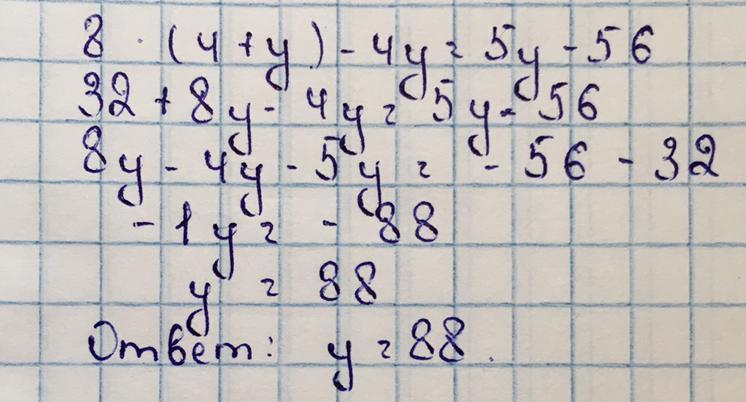 8 · (4+y) - 4y = 5y - 56
32 + 8y - 4y = 5y - 56
8y - 4y - 5y = - 56 - 32
- 1y = - 88
y = 88
Ответ: y = 88.